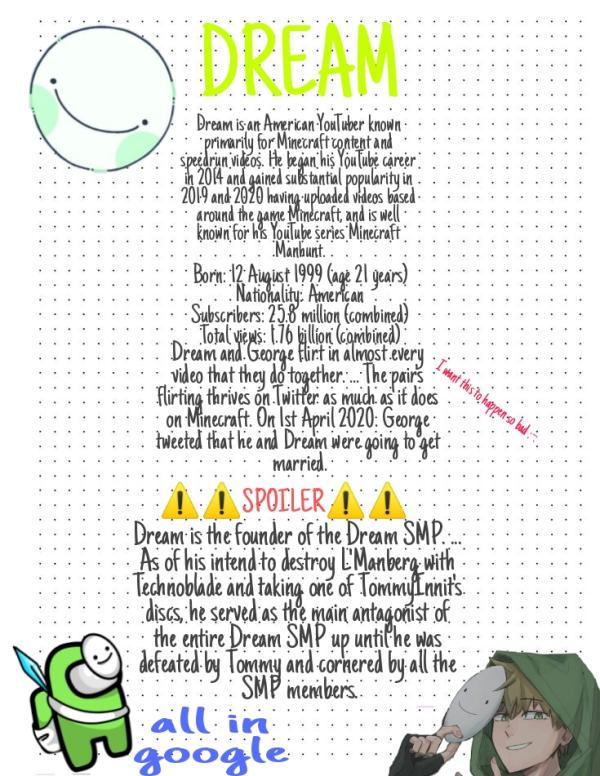 DREAM
Dream is an American YouTuber known
primarily for Minecraft content and
speedrun videos. He began his YouTube career
in 2014 and gained substantial popularity in
2019 and 2020 having uploaded videos based
around the game Minecraft, and is well
known for his YouTube series Minecraft
Manhunt.
Born: 12 August 1999 (age 21 years)
Nationality: American
Subscribers: 25.8 million (combined)
Total views: 1.76 billion (combined)
Dream and George flirt in almost every
video that they do together. ... The pairs
flirting thrives on Twitter as much as it does
on Minecraft. On 1st April 2020: George
tweeted that he and Dream were going to get
married.
I want this to happen so bad ...
⚠️⚠️SPOILER⚠️⚠️
Dream is the founder of the Dream SMP. ...
As of his intend to destroy L'Manberg with
Technoblade and taking one of TommyInnit's
discs, he served as the main antagonist of
the entire Dream SMP up until he was
defeated by Tommy and cornered by all the
SMP members.
all in
google